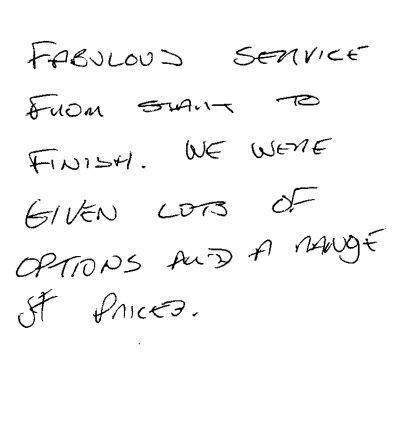 FABULOUS SERVICE
FROM START TO
FINISH. WE WERE
GIVEN LOTS OF
OPTIONS AND A RANGE
OF PRICES.